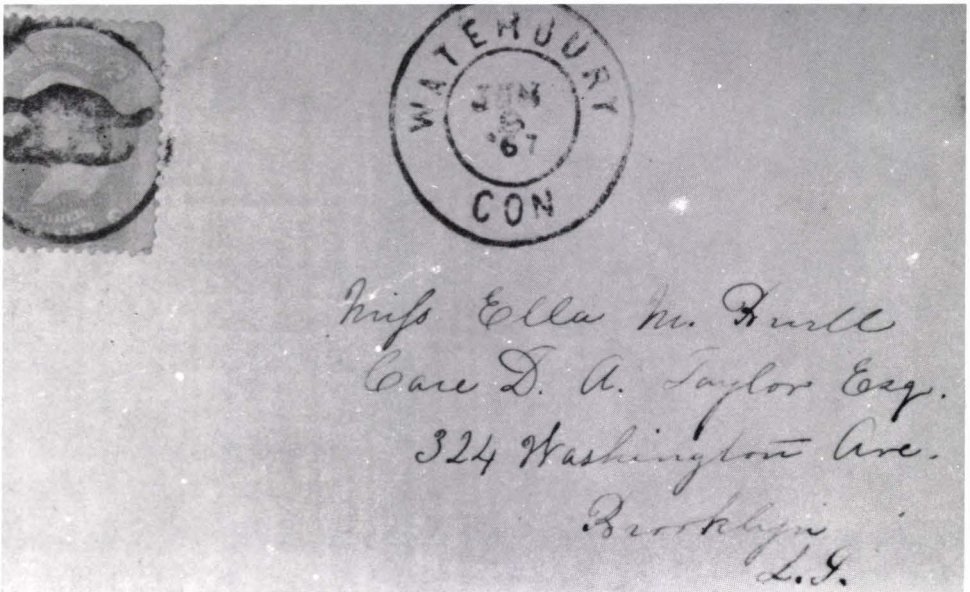 WATERBURY
JUN
'67
CON
Miss Ella M.
Care D. A. Taylor Esq.
324 Washington Ave.
Brooklyn
L.I.